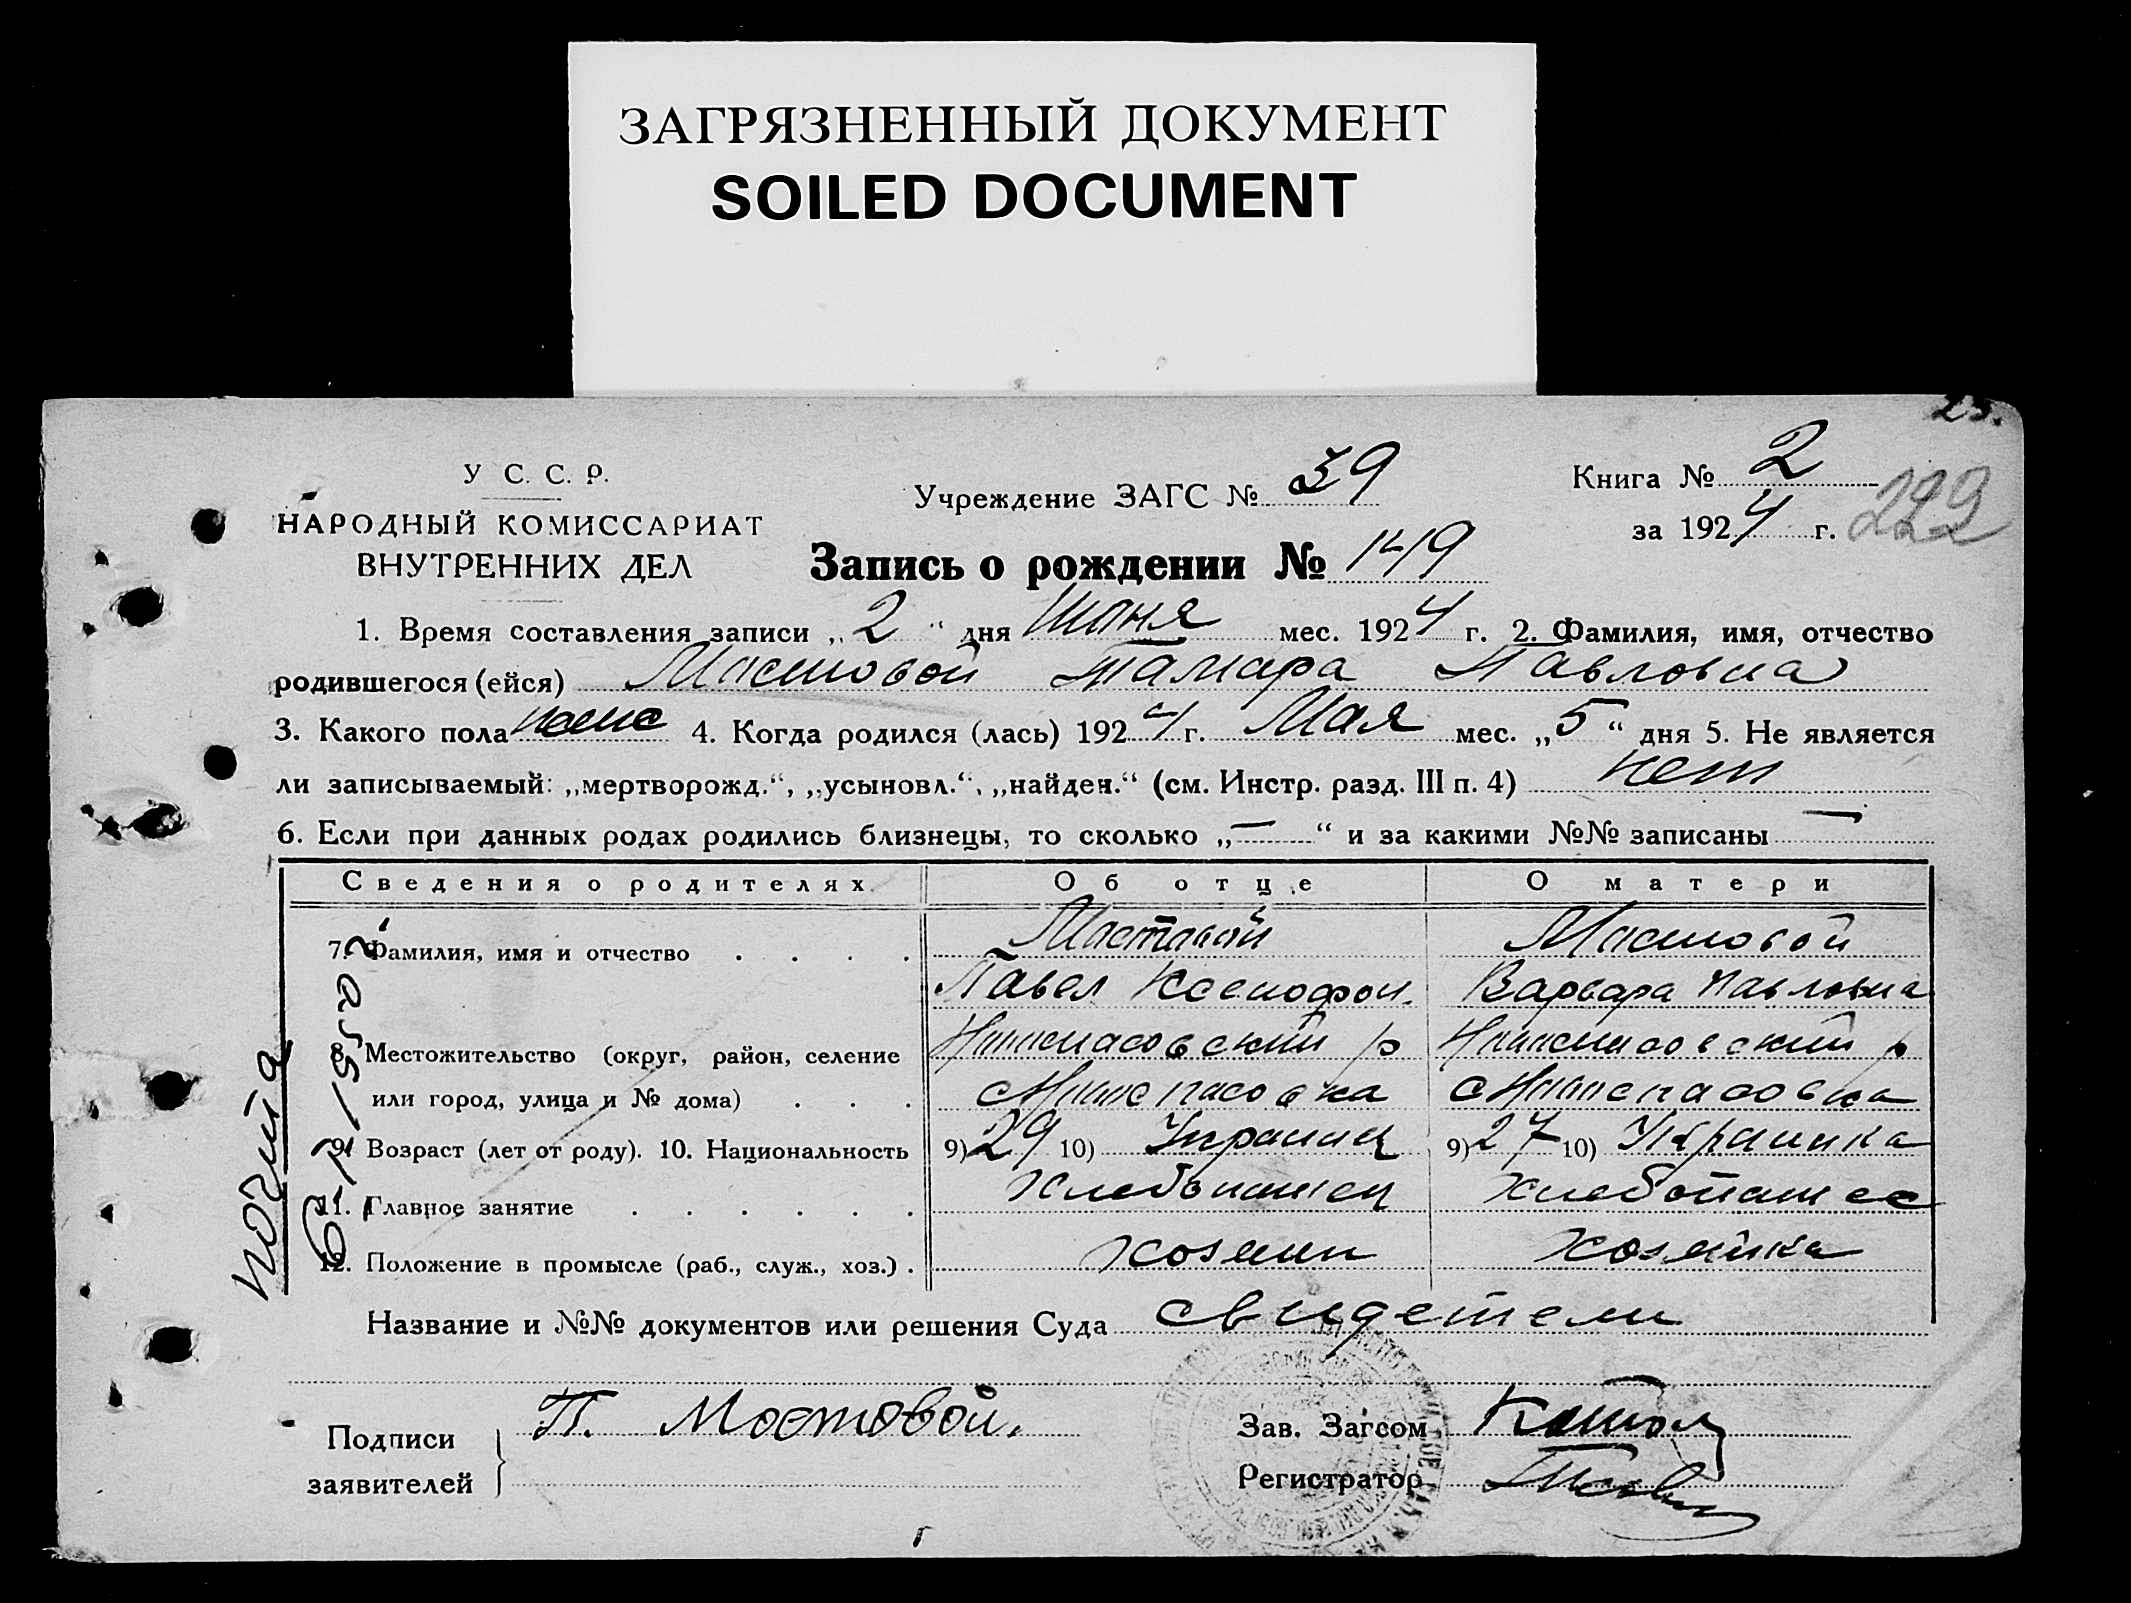 ЗАГРЯЗНЕННЫЙ ДОКУМЕНТ
SOILED DOCUMENT
23.
У С. С. Р.
НАРОДНЫЙ КОМИССАРИАТ
ВНУТРЕННИХ ДЕЛ
Учреждение ЗАГС № 39
Книга № 2
за 1924 г. 222
Запись о рождении № 149
1. Время составления записи „2“ дня Июня мес. 1924 г. 2. Фамилия, имя, отчество
родившегося (ейся) Мостовой Тамара Павловна
3. Какого пола женс 4. Когда родился (лась) 1924 г. Мая мес. „5“ дня 5. Не является
ли записываемый: „мертворожд.“, „усыновл.“, „найден.“ (см. Инстр. разд. III п. 4) нет
6. Если при данных родах родились близнецы, то сколько „—“ и за какими №№ записаны —
Сведения о родителях Об отце О матери
7. Фамилия, имя и отчество . . . . Мостовой Мостовой
Павел Ксенофон. Варвара Павловна
8. Местожительство (округ, район, селение
или город, улица и № дома) . . .
9. Возраст (лет от роду). 10. Национальность 9) 29 10) Украинец 9) 27 10) Украинка
11. Главное занятие . . . . . . Хлебопашец хлебопашес
12. Положение в промысле (раб., служ., хоз.) . хозяин хозяйка
Название и №№ документов или решения Суда свидетели
Подписи П. Мостовой.
заявителей
Зав. Загсом
Регистратор